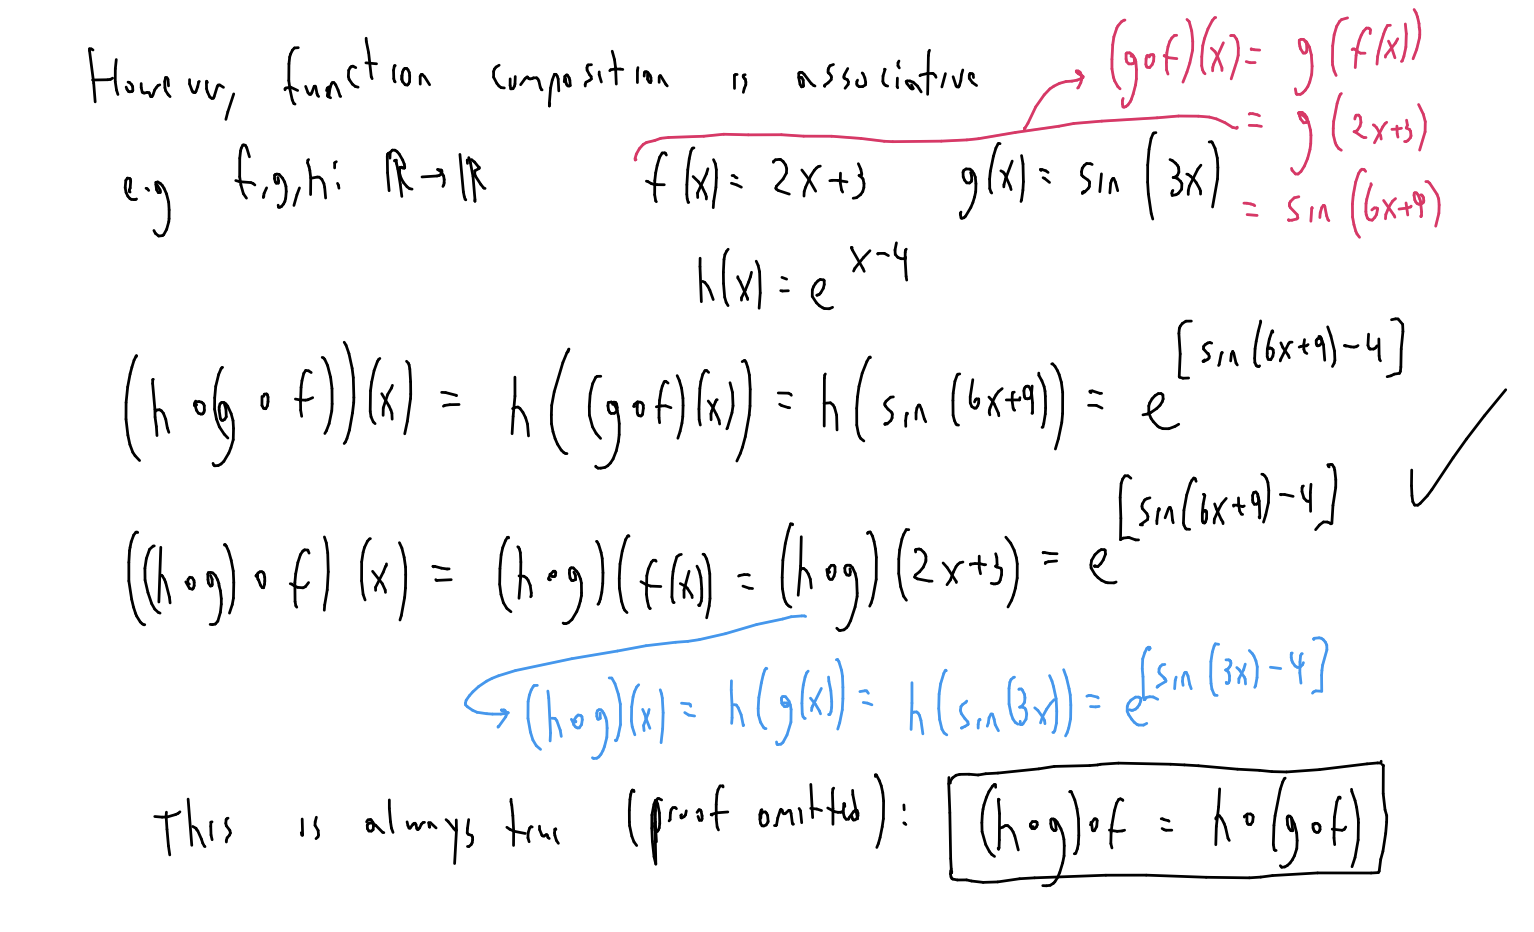 However, function composition is associative
(g∘f)(x) = g(f(x))
= g(2x+3)
= sin(6x+9)
e.g f,g,h: ℝ→ℝ f(x) = 2x+3 g(x) = sin(3x)
h(x) = e^{x-4}
(h∘(g∘f))(x) = h((g∘f)(x)) = h(sin(6x+9)) = e^{[sin(6x+9)-4]}
((h∘g)∘f)(x) = (h∘g)(f(x)) = (h∘g)(2x+3) = e^{[sin(6x+9)-4]} ✓
(h∘g)(x) = h(g(x)) = h(sin(3x)) = e^{[sin(3x)-4]}
This is always true (proof omitted): (h∘g)∘f = h∘(g∘f)